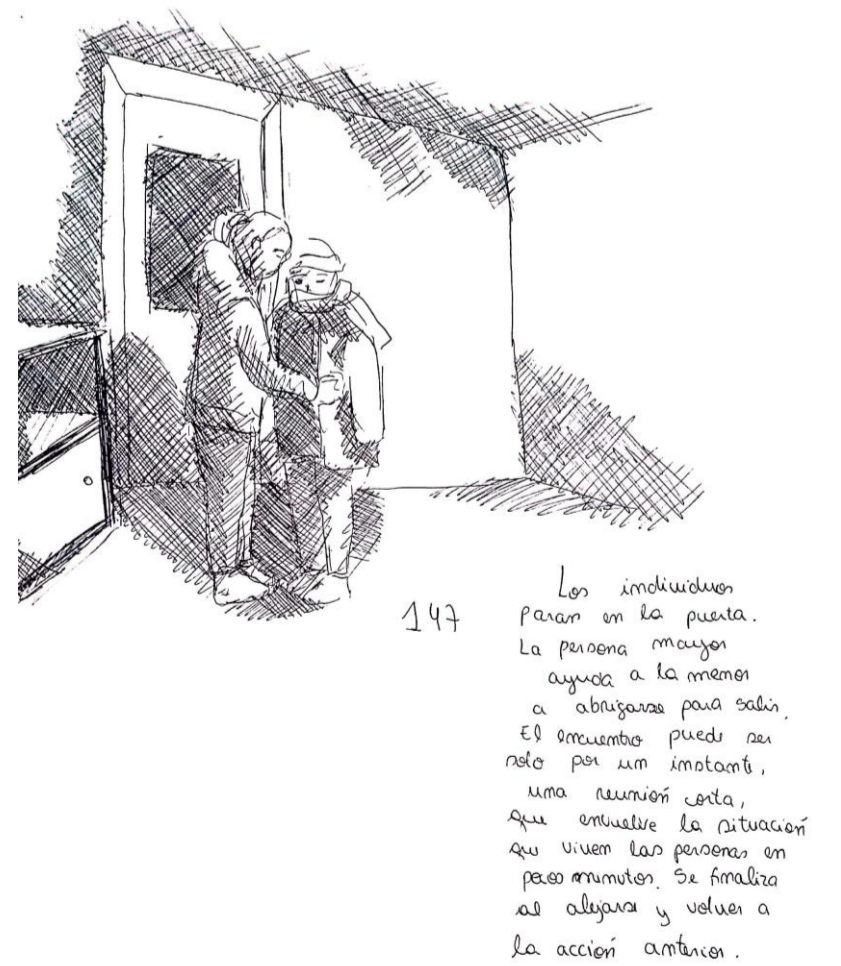 147
Los individuos
paran en la puerta.
La persona mayor
ayuda a la menor
a abrigarse para salir.
El encuentro puede ser
solo por un instante,
una reunión corta,
que envuelve la situación
que viven las personas en
pocos minutos. Se finaliza
al alejarse y volver a
la acción anterior.